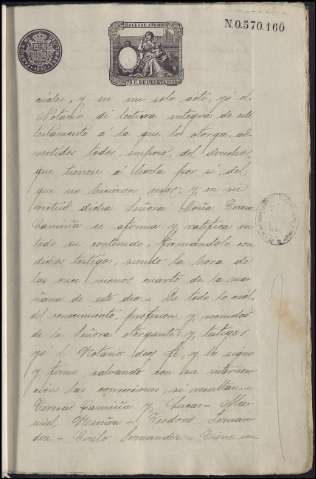 N.0.570.160
ciales, y en un solo acto, yó el
Notario dí lectura integra de este
testamento á la que lo otorga, ad-
vertidos todos empero, del derecho
que tienen á leerlo por si, del
que no hicieron uso; y en su
virtud dicha Señora Doña Teresa
se afirma y ratifica en
todo su contenido, firmándolo con
dichos testigos, siendo la hora de
las once menos cuarto de la ma-
ñana de este dia. De todo lo cual,
del conocimiento, profesion y vecindad
de la Señora otorgante, y testigos
yó el Notario doy fé, y lo signo
y firmo, salvando con mi interven-
cion las correcciones si resultan.-
Teresa y
Teodoro Fernan-
dez - Cirilo Fernandez -